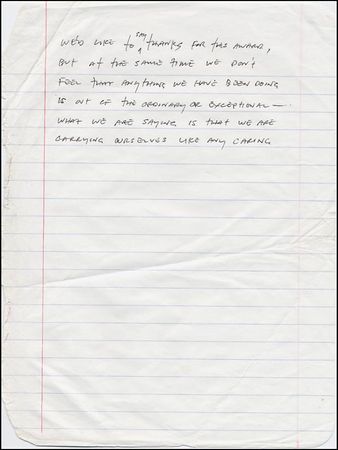 WE'D LIKE TO SAY THANKS FOR THIS AWARD,
BUT AT THE SAME TIME WE DON'T
FEEL THAT ANYTHING WE HAVE BEEN DOING
IS OUT OF THE ORDINARY OR EXCEPTIONAL—
WHAT WE ARE SAYING IS THAT WE ARE
CARRYING OURSELVES LIKE ANY CARING